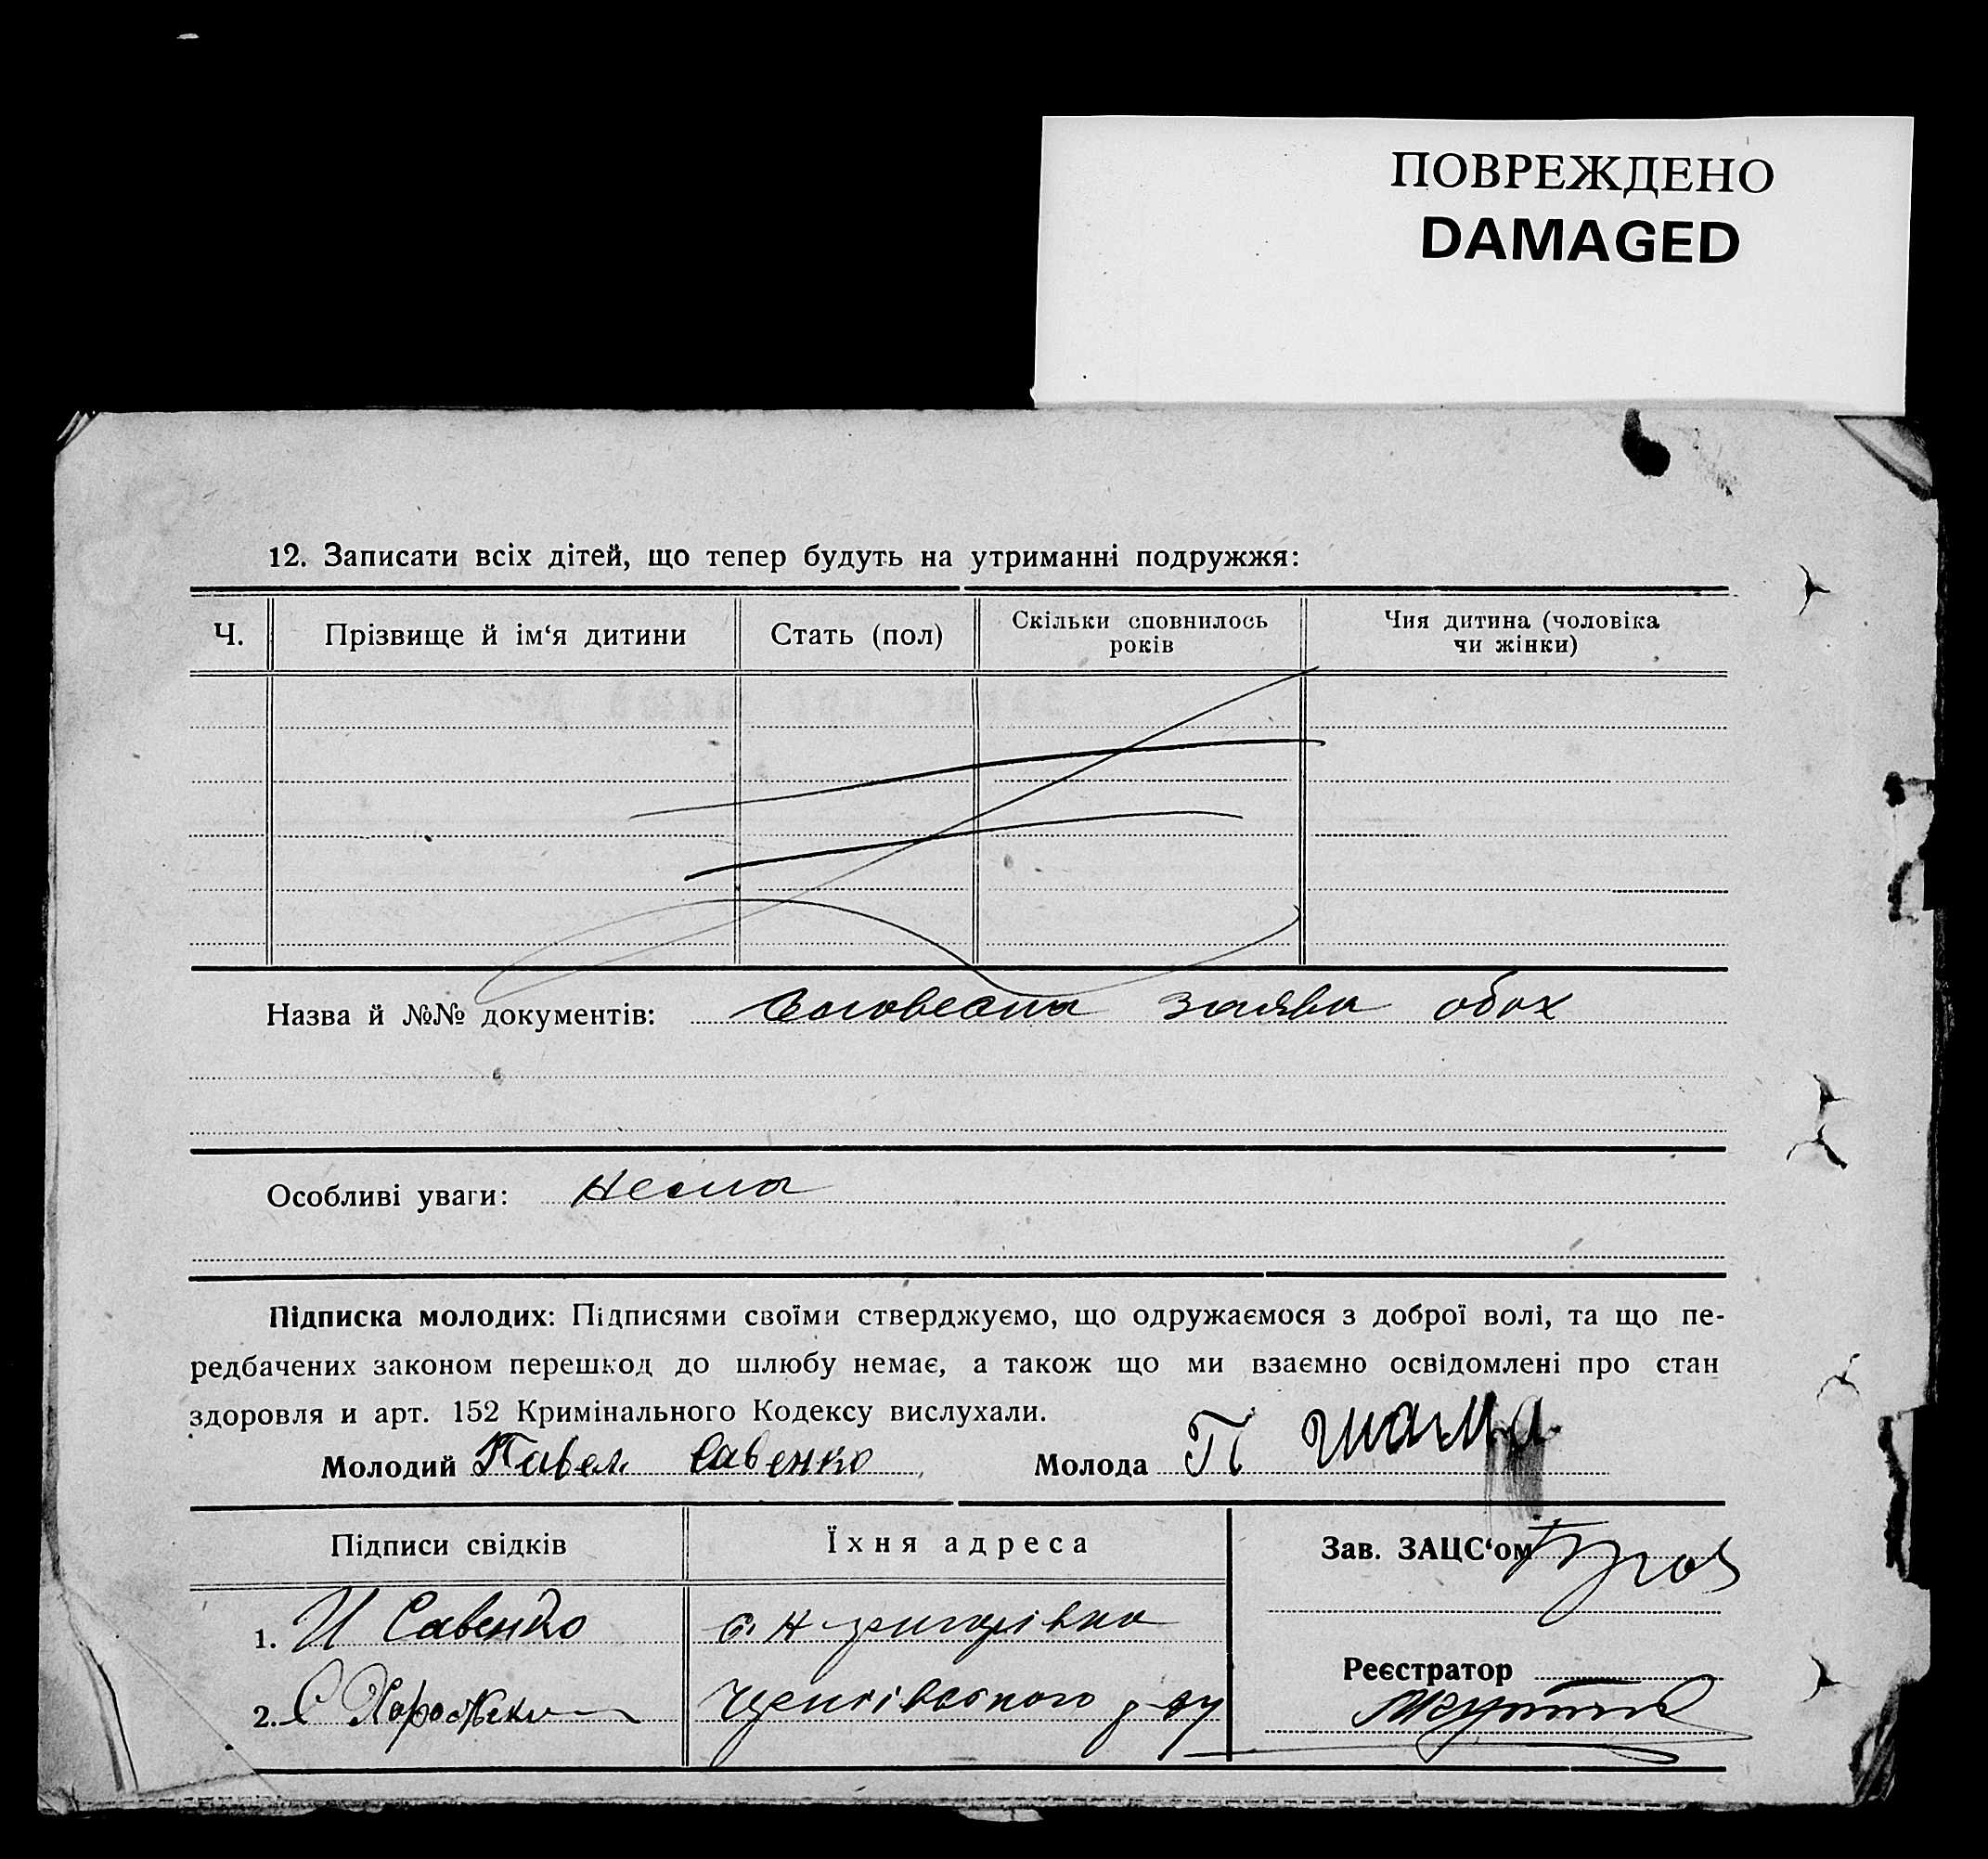 ПОВРЕЖДЕНО
DAMAGED
12. Записати всіх дітей, що тепер будуть на утриманні подружжя:
Ч. Прізвище й ім‘я дитини Стать (пол) Скільки сповнилось років Чия дитина (чоловіка чи жінки)
Назва й №№ документів: Словесна заява обох
Особливі уваги: Нема
Підписка молодих: Підписями своїми стверджуємо, що одружаємося з доброї волі, та що пе-
редбачених законом перешкод до шлюбу немає, а також що ми взаємно освідомлені про стан
здоровля и арт. 152 Кримінального Кодексу вислухали.
Молодий Павел Савенко Молода П Шама
Підписи свідків Їхня адреса Зав. ЗАЦС‘ом
1. И Савенко с. Н
Реєстратор
2. С